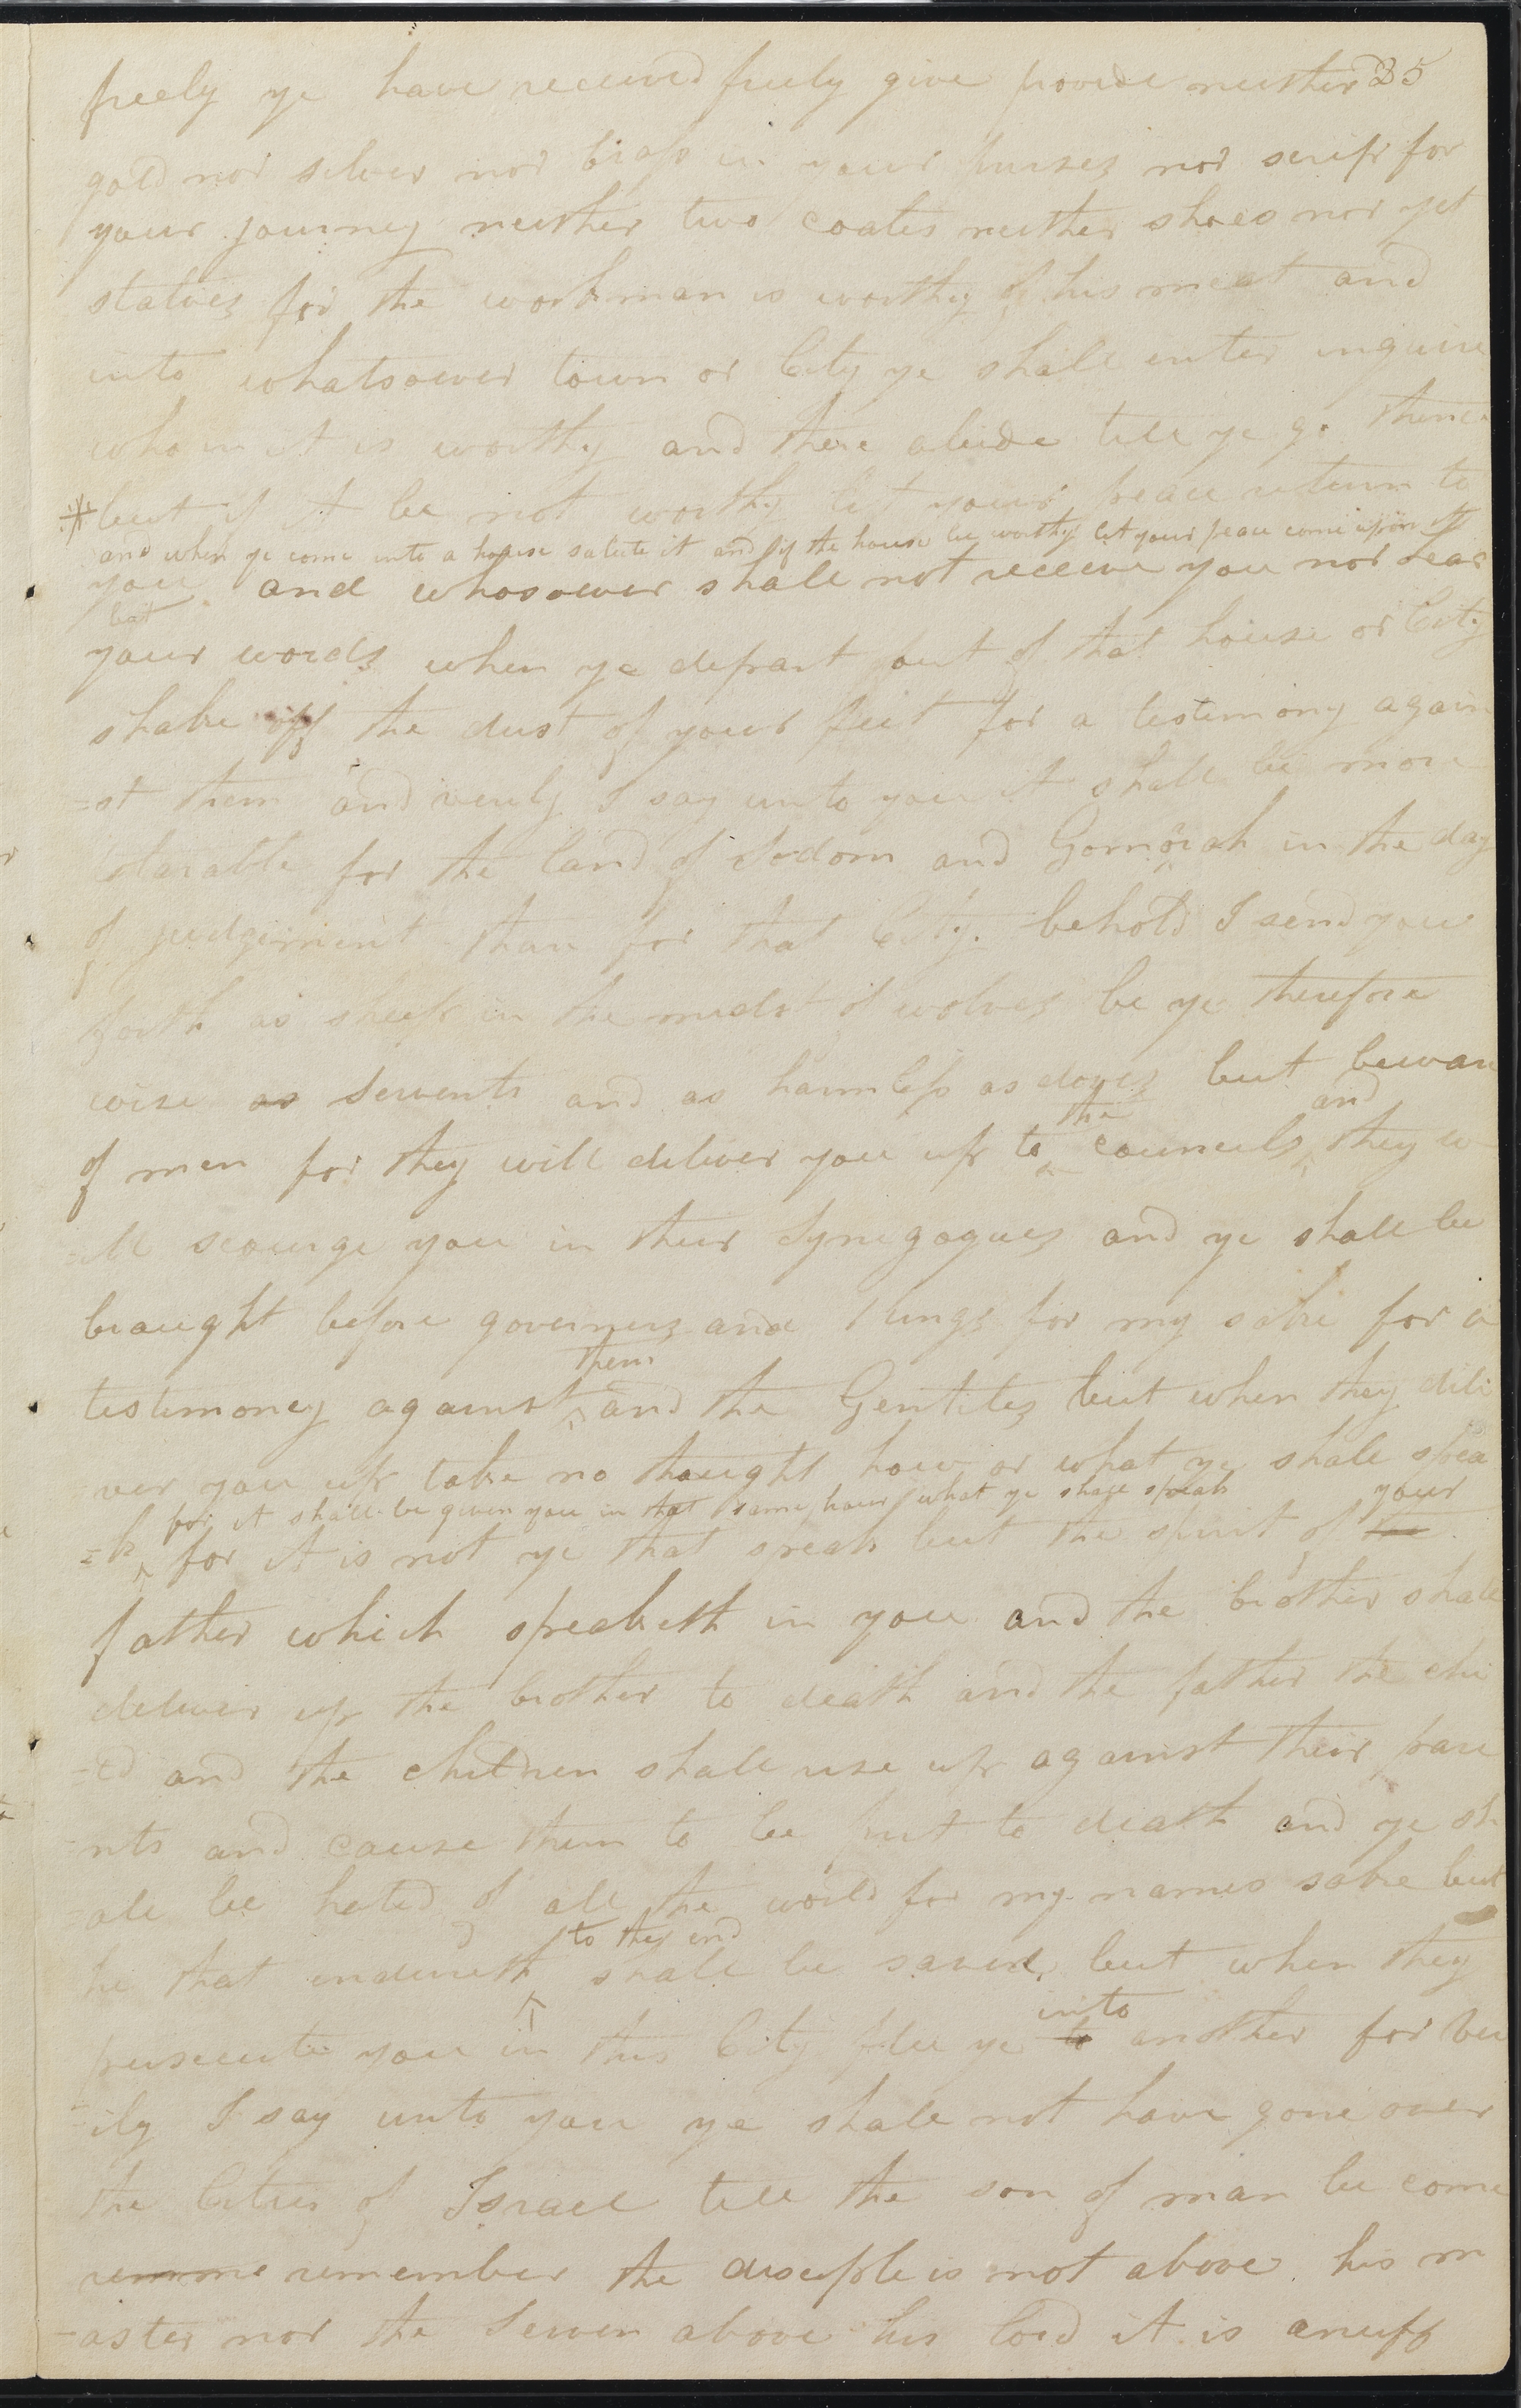 freely ye have received freely give provide neither 35
gold nor silver nor brass in your purses nor scrip for
your journey neither two coates neither shoes nor yet
staives for the workman is worthy of his meat and
into whatsoever town or City ye shall enter inquire
who in it is worthy and there abide till ye go thence
*but if it be not worthy let your peace return to
and when ye come into a house salute it and if the house be worthy let your peace come upon it
you and whosoever shall not receive you nor hear
but
your words when ye depart out of that house or City
shake off the dust of your feet for a testimony again
=st them and verily I say unto you it shall be more
tolarable for the land of Sodom and Gomorah in the day
of judgement than for that City. behold I send you
forth as sheep in the midst of wolves be ye therefore
wise as servents and as harmless as doves but beware
the and
of men for they will deliver you up to councils they w
=ill scourge you in their Synegogues and ye shall be
braught before governers and kings for my sake for a
them
testimoney against and the Gentiles but when they deli
=ver you up take no thaught how or what ye shall spea
for it shall be given you in that same hour what ye shall speak your
=k for it is not ye that speak but the spirit of the
father which speaketh in you and the brother shall
deliver up the brother to death and the father the chi
=ld and the children shall rise up against their pare
=nts and cause them to be put to death and ye sh
=all be hated of all the world for my names sake but
to the end
he that endureth shall be saved, but when they
into
persecute you in this City flee ye to another for ver
=ily I say unto you ye shall not have gone over
the Cities of Israel till the son of man be come
remme remember the disciple is not above his m
=aster nor the Serven above his lord it is enuff